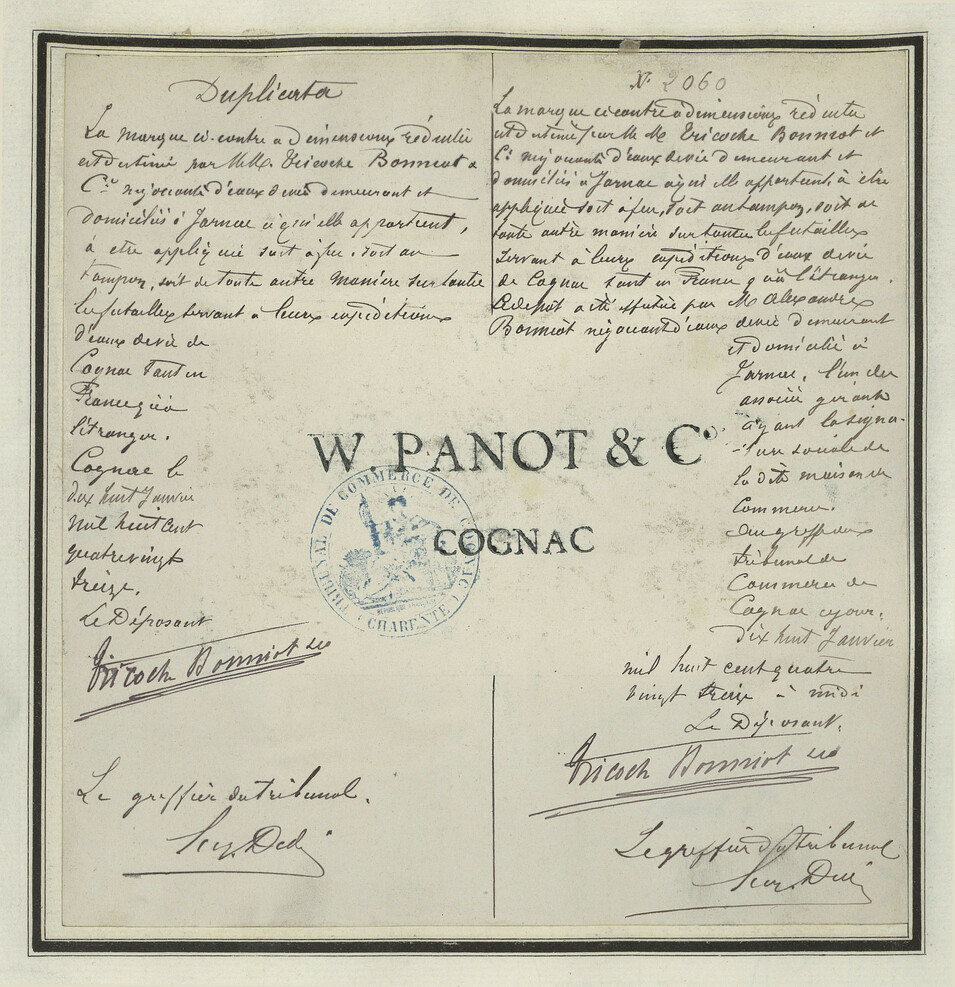 Duplicata
La marque ci-contre à dimensions réduites
est destinée par MM. Tricoche Bonniot &
Cie négociants d'eaux de vie demeurant et
domiciliés à Jarnac à qui elle appartient,
à être appliquée soit à feu, soit au
tampon, soit de toute autre manière sur toutes
les futailles servant à leurs expéditions
d'eaux de vie de
Cognac tant en
France qu'à
l'étranger.
Cognac le
dix huit Janvier
mil huit cent
quatre vingt
treize.
Le Déposant
Tricoche Bonniot & Co
Le greffier du tribunal.
N° 2060
La marque ci-contre à dimensions réduites
est destinée par MM. Tricoche Bonniot et
Cie négociants d'eaux de vie demeurant et
domiciliés à Jarnac à qui elle appartient, à être
appliquée soit à feu, soit au tampon, soit de
toute autre manière sur toutes les futailles
servant à leurs expéditions d'eaux de vie
de Cognac tant en France qu'à l'étranger.
Le dépôt a été effectué par M. Alexandre
Bonniot négociant d'eaux de vie demeurant
et domicilié à
Jarnac, l'un des
associés gérants
ayant la signa-
-ture sociale de
la dite maison de
commerce.
Au greffe du
tribunal de
Commerce de
Cognac ce jour.
dix huit Janvier
mil huit cent quatre
vingt treize à midi
Le Déposant.
Tricoche Bonniot & Co
Le greffier du tribunal
W. PANOT & Co
COGNAC
TRIBUNAL DE COMMERCE DE COGNAC
(CHARENTE)
REPUBLIQUE FRANÇAISE